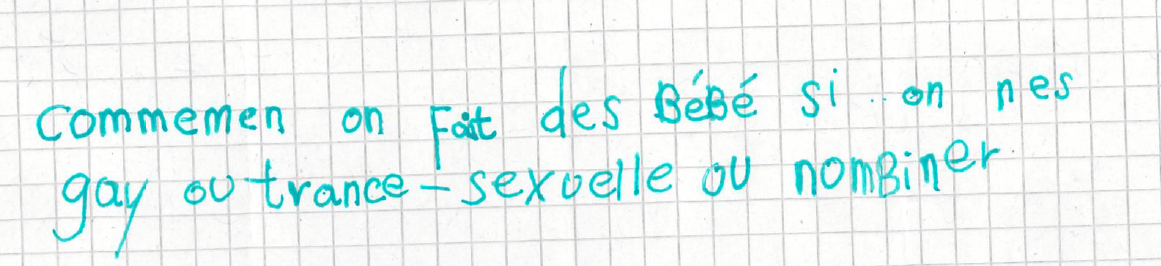 commemen on Fait des BéBé si on nes
gay ou trance-sexuelle ou nomBiner